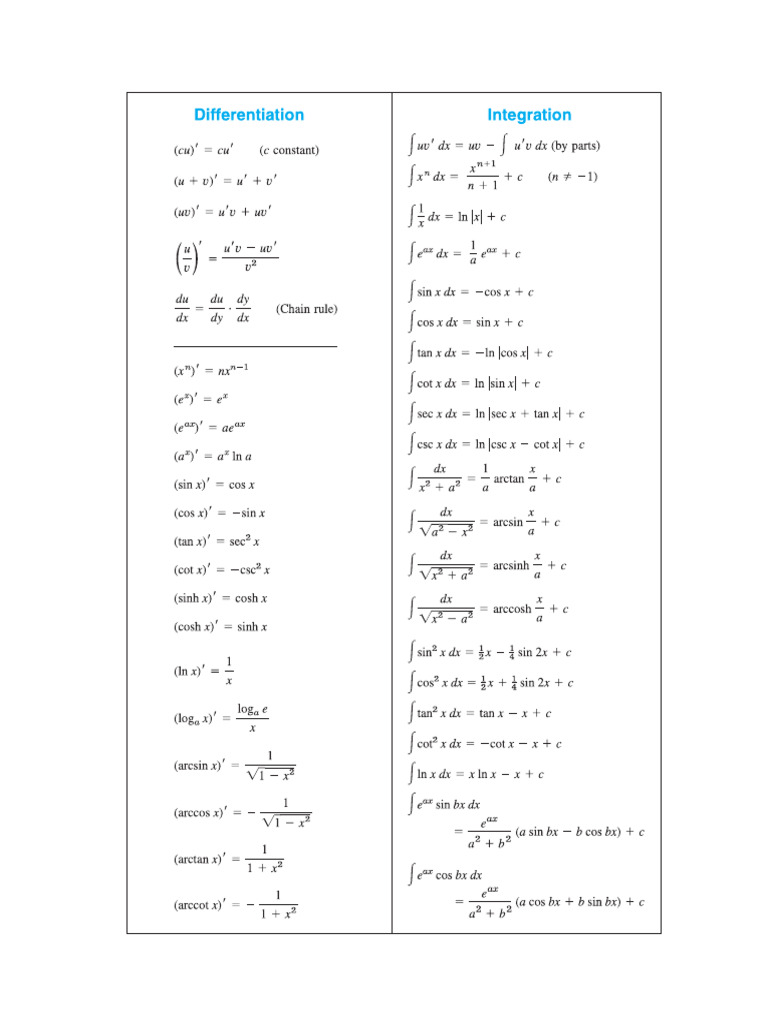 Differentiation
(cu)′ = cu′ (c constant)
(u + v)′ = u′ + v′
(uv)′ = u′v + uv′
(u/v)′ = (u′v − uv′)/v²
du/dx = du/dy · dy/dx (Chain rule)
(xⁿ)′ = nxⁿ⁻¹
(eˣ)′ = eˣ
(eᵃˣ)′ = aeᵃˣ
(aˣ)′ = aˣ ln a
(sin x)′ = cos x
(cos x)′ = −sin x
(tan x)′ = sec² x
(cot x)′ = −csc² x
(sinh x)′ = cosh x
(cosh x)′ = sinh x
(ln x)′ = 1/x
(logₐ x)′ = logₐ e/x
(arcsin x)′ = 1/√(1 − x²)
(arccos x)′ = −1/√(1 − x²)
(arctan x)′ = 1/(1 + x²)
(arccot x)′ = −1/(1 + x²)
Integration
∫uv′ dx = uv − ∫u′v dx (by parts)
∫xⁿ dx = xⁿ⁺¹/(n + 1) + c (n ≠ −1)
∫1/x dx = ln |x| + c
∫eᵃˣ dx = 1/a eᵃˣ + c
∫sin x dx = −cos x + c
∫cos x dx = sin x + c
∫tan x dx = −ln |cos x| + c
∫cot x dx = ln |sin x| + c
∫sec x dx = ln |sec x + tan x| + c
∫csc x dx = ln |csc x − cot x| + c
∫dx/(x² + a²) = 1/a arctan x/a + c
∫dx/√(a² − x²) = arcsin x/a + c
∫dx/√(x² + a²) = arcsinh x/a + c
∫dx/√(x² − a²) = arccosh x/a + c
∫sin² x dx = ½x − ¼ sin 2x + c
∫cos² x dx = ½x + ¼ sin 2x + c
∫tan² x dx = tan x − x + c
∫cot² x dx = −cot x − x + c
∫ln x dx = x ln x − x + c
∫eᵃˣ sin bx dx
= eᵃˣ/(a² + b²) (a sin bx − b cos bx) + c
∫eᵃˣ cos bx dx
= eᵃˣ/(a² + b²) (a cos bx + b sin bx) + c